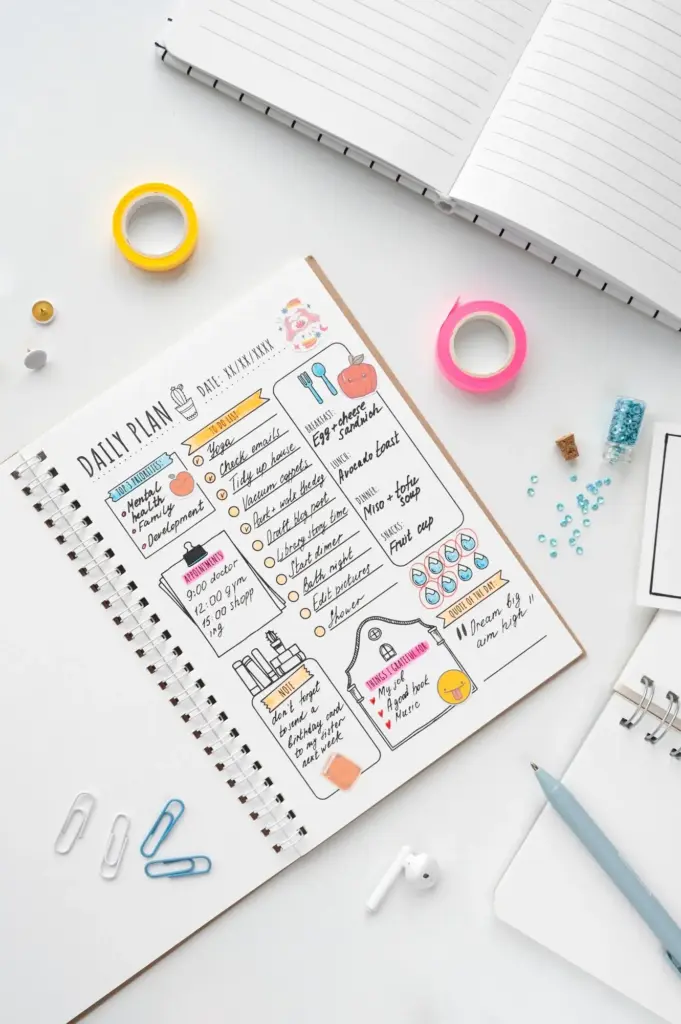 DAILY PLAN
DATE: XX/XX/XXXX
TOP 3 PRIORITIES:
Mental
health
Family
Development
APPOINTMENTS
9:00 doctor
12:00 gym
15:00 shopp
ing
TO DO LIST:
Yoga
Check emails
Tidy up house
Vacuum carpets
Draft blog post
Library story time
Start dinner
Bath night
Edit pictures
Shower
BREAKFAST:
Egg + cheese
sandwich
LUNCH:
Avocado toast
DINNER:
Miso + tofu
soup
SNACKS:
Fruit cup
QUOTE OF THE DAY:
"Dream big
aim high"
NOTE:
don't forget
to send a
birthday card
to my sister
next week
THINGS I GRATEFUL FOR
My job
A good book
Music